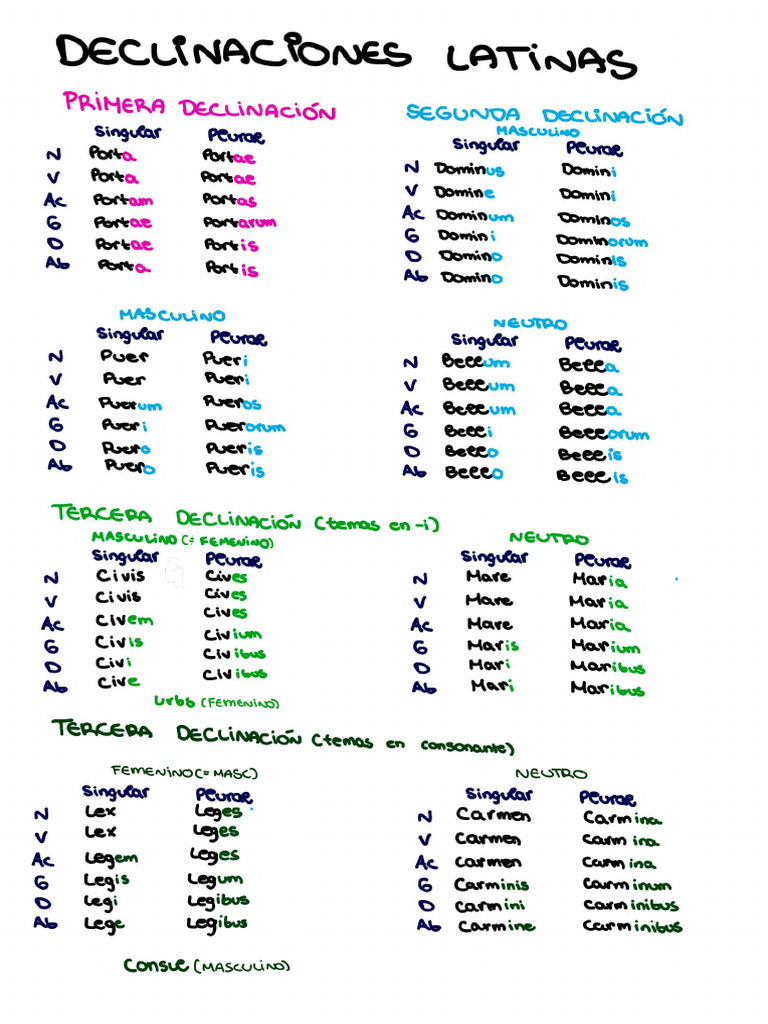 DECLINACIONES LATINAS
PRIMERA DECLINACIÓN
Singular Plural
N Porta Portae
V Porta Portae
Ac Portam Portas
G Portae Portarum
D Portae Portis
Ab Porta Portis
SEGUNDA DECLINACIÓN
MASCULINO
Singular Plural
N Dominus Domini
V Domine Domini
Ac Dominum Dominos
G Domini Dominorum
D Domino Dominis
Ab Domino Dominis
MASCULINO
Singular Plural
N Puer Pueri
V Puer Pueri
Ac Puerum Pueros
G Pueri Puerorum
D Puero Pueris
Ab Puero Pueris
NEUTRO
Singular Plural
N Bellum Bella
V Bellum Bella
Ac Bellum Bella
G Belli Bellorum
D Bello Bellis
Ab Bello Bellis
TERCERA DECLINACIÓN (temas en -i)
MASCULINO (= FEMENINO)
Singular Plural
N Civis Cives
V Civis Cives
Ac Civem Cives
G Civis Civium
D Civi Civibus
Ab Cive Civibus
Urbs (FEMENINO)
NEUTRO
Singular Plural
N Mare Maria
V Mare Maria
Ac Mare Maria
G Maris Marium
D Mari Maribus
Ab Mari Maribus
TERCERA DECLINACIÓN (temas en consonante)
FEMENINO (= MASC)
Singular Plural
N Lex Leges
V Lex Leges
Ac Legem Leges
G Legis Legum
D Legi Legibus
Ab Lege Legibus
Consul (MASCULINO)
NEUTRO
Singular Plural
N Carmen Carmina
V Carmen Carmina
Ac Carmen Carmina
G Carminis Carminum
D Carmini Carminibus
Ab Carmine Carminibus